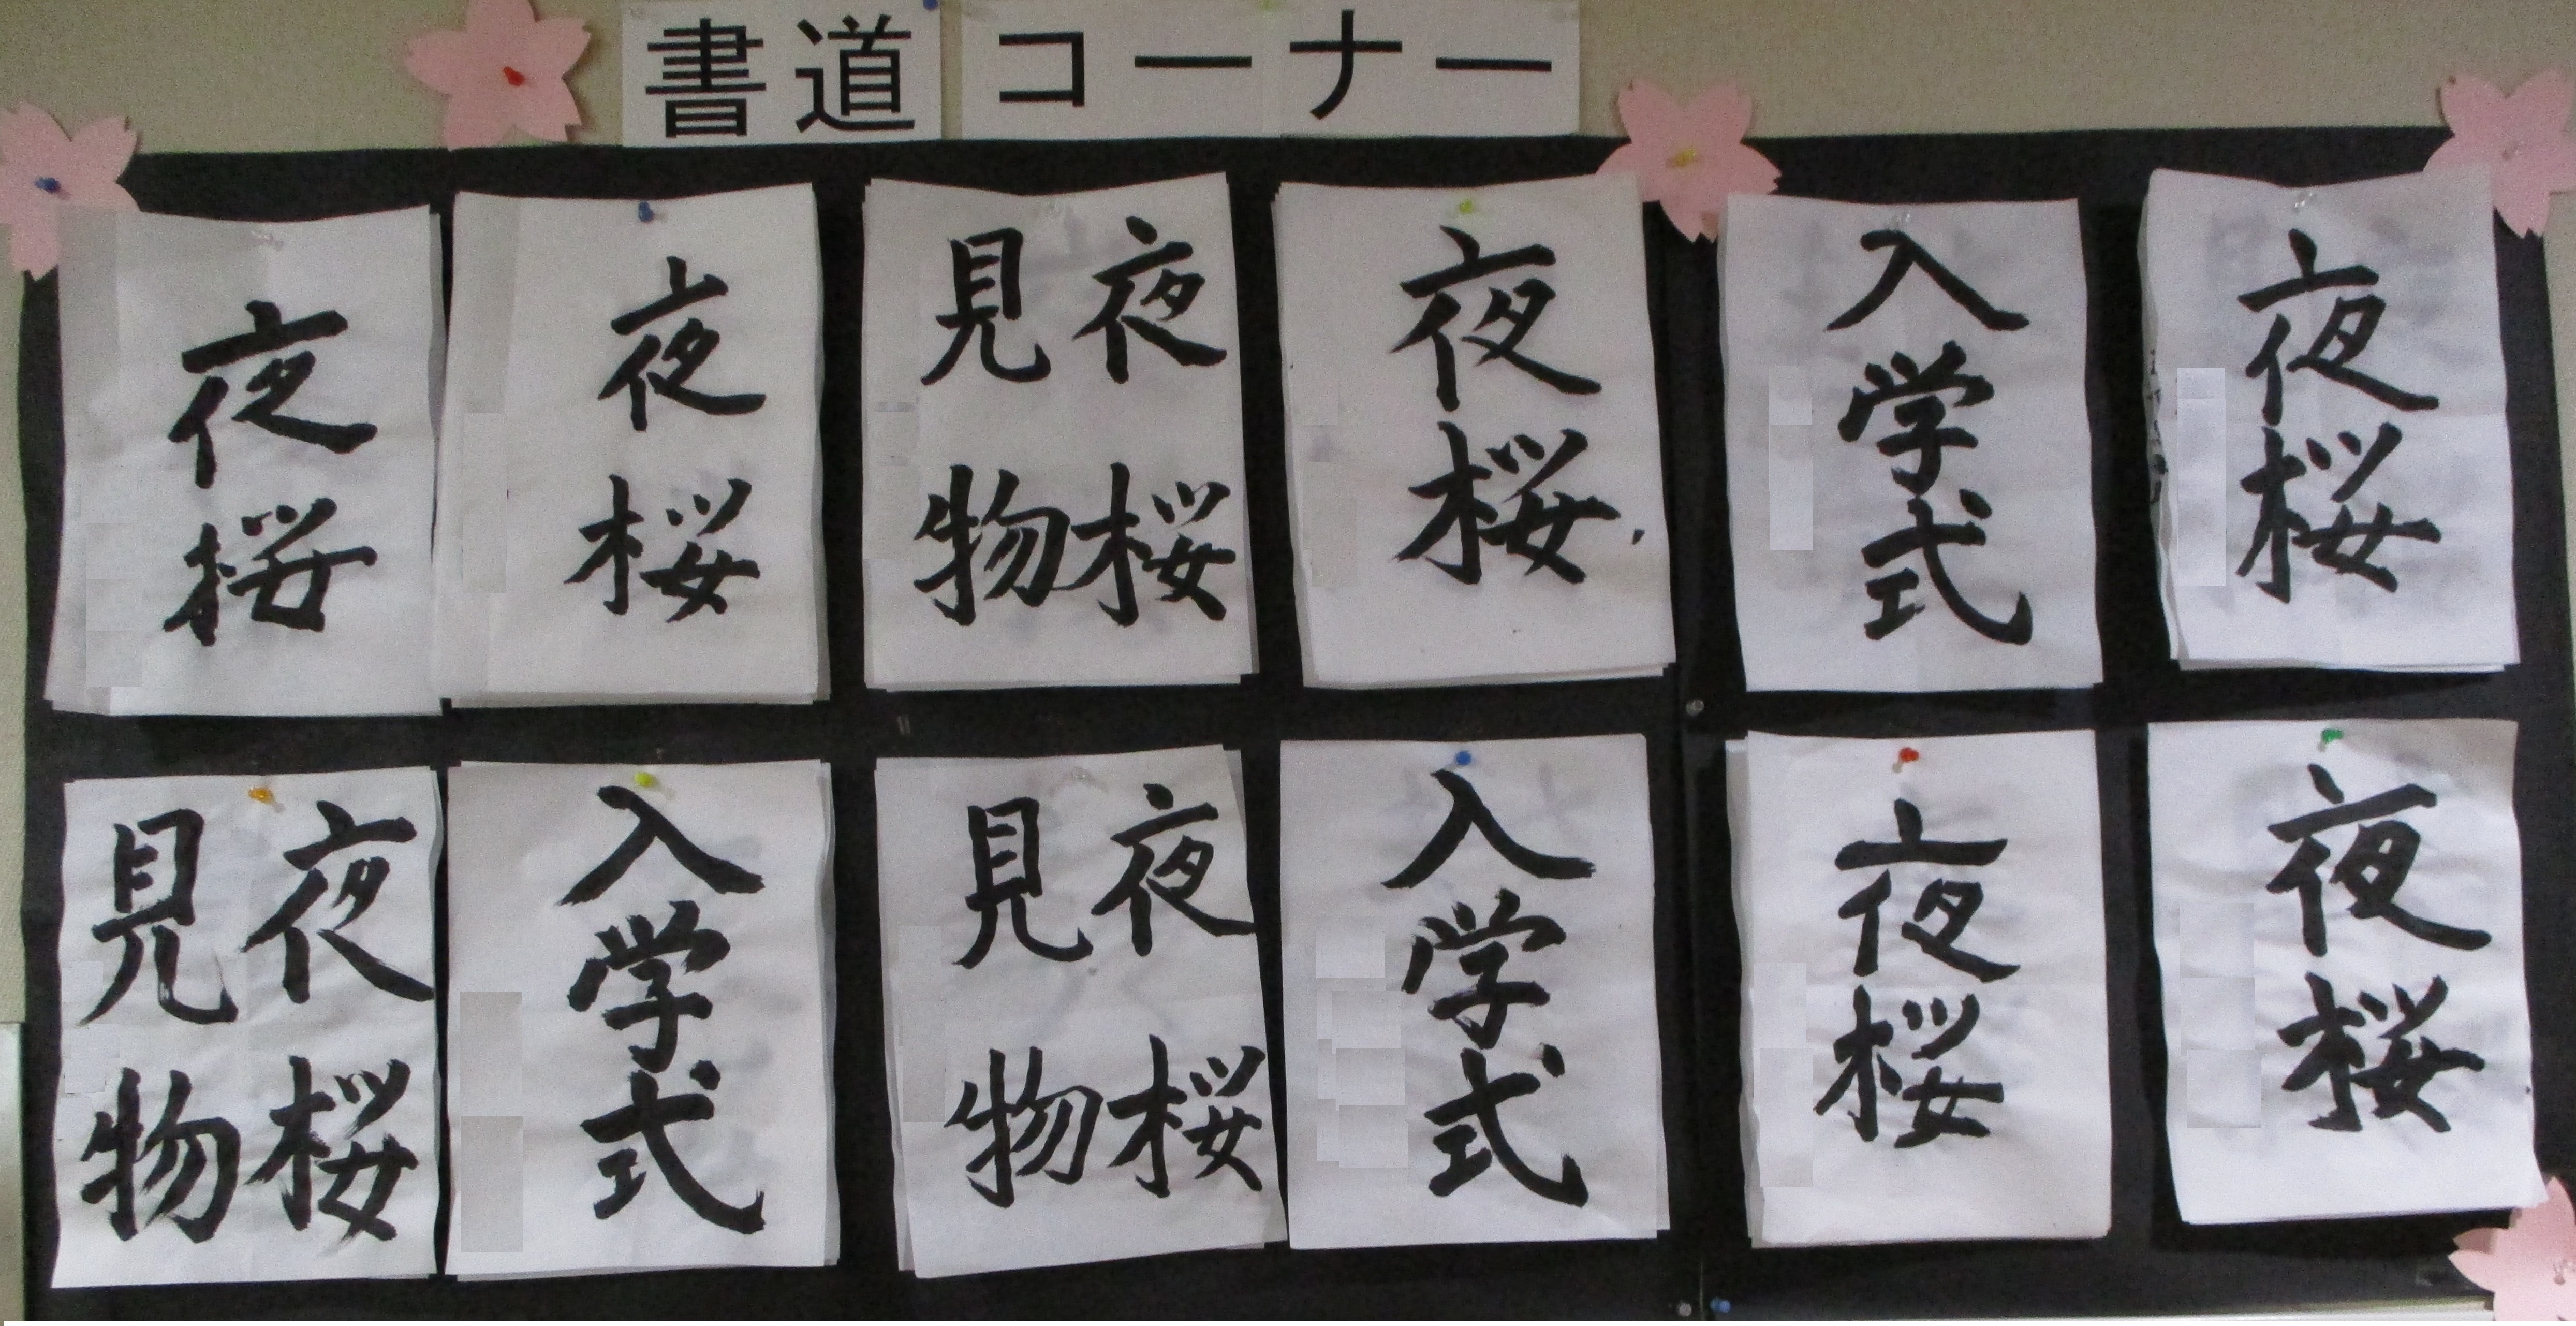 書道コーナー
夜桜
夜桜
夜桜
見物
夜桜
入学式
夜桜
夜桜
見物
入学式
夜桜
見物
入学式
夜桜
夜桜